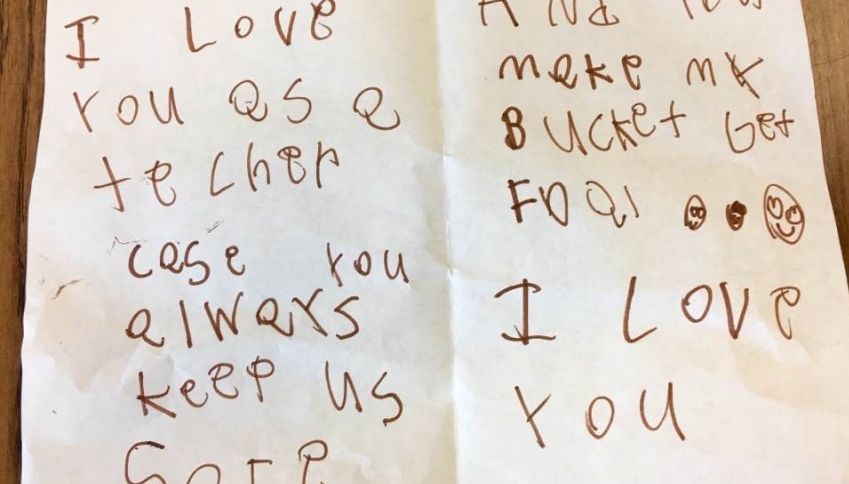 I Love
You as a
techer
case You
always
keep us
Safe
And You
make my
Bucket Get
I Love
You